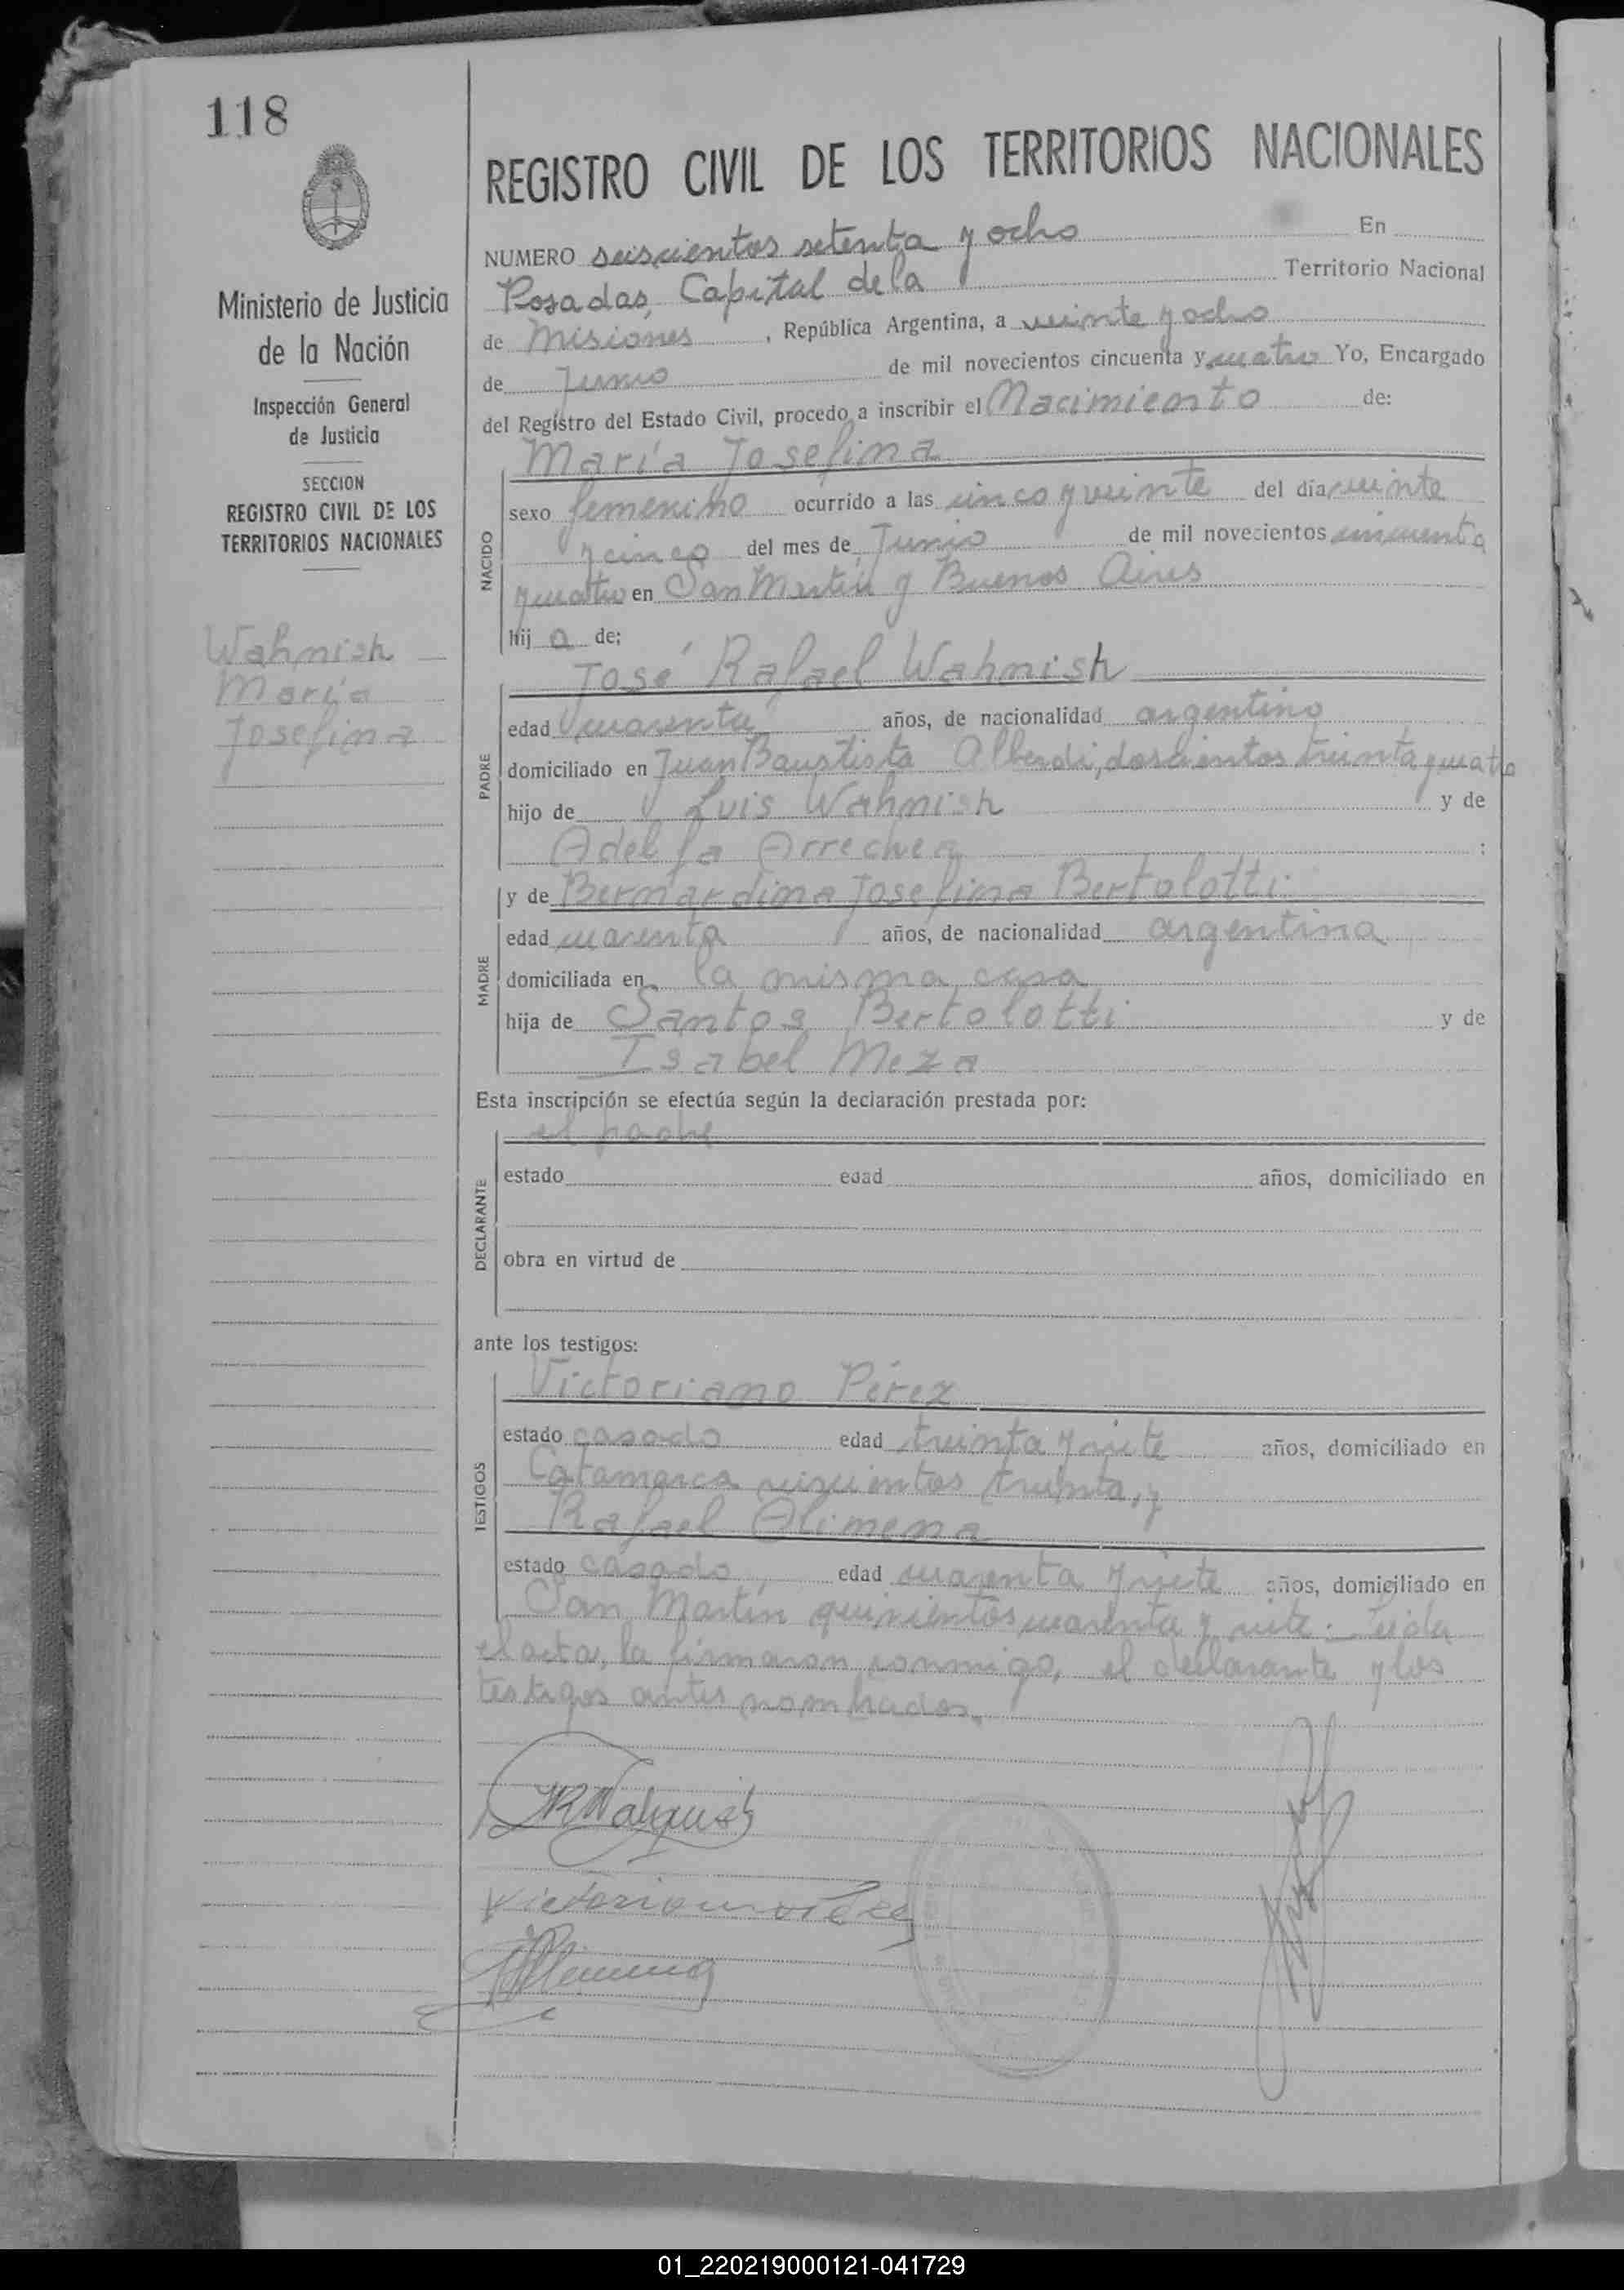 118
REGISTRO CIVIL DE LOS TERRITORIOS NACIONALES
Ministerio de Justicia
de la Nación
Inspección General
de Justicia
SECCION
REGISTRO CIVIL DE LOS
TERRITORIOS NACIONALES
Wahnish
María
Josefina
NUMERO seiscientos setenta y ocho En
Posadas, Capital de la Territorio Nacional
de Misiones, República Argentina, a veinte y ocho
de Junio de mil novecientos cincuenta y cuatro Yo, Encargado
del Registro del Estado Civil, procedo a inscribir el Nacimiento de:
María Josefina
NACIDO
sexo femenino ocurrido a las cinco y veinte del día veinte
y cinco del mes de Junio de mil novecientos cincuenta
y cuatro en San Martín y Buenos Aires
hij a de;
José Rafael Wahnish
PADRE
edad cuarenta años, de nacionalidad argentino
domiciliado en Juan Baustista Alberdi, doscientos treinta y cuatro
hijo de Luis Wahnish y de
Adelfa Arrechea :
y de Bernardina Josefina Bertolotti
MADRE
edad cuarenta años, de nacionalidad argentina
domiciliada en la misma casa
hija de Santos Bertolotti y de
Isabel Meza
Esta inscripción se efectúa según la declaración prestada por:
el padre
DECLARANTE
estado edad años, domiciliado en
obra en virtud de
ante los testigos:
Victoriano Pérez
TESTIGOS
estado casado edad treinta y siete años, domiciliado en
Catamarca seiscientos treinta, y
Rafael Alimena
estado casado, edad cuarenta y siete años, domiciliado en
San Martín quinientos cuarenta y siete. Leída
el acta, la firmaron conmigo, el declarante y los
testigos antes nombrados.
JRWahnish
Victoriano Perez
01_220219000121-041729